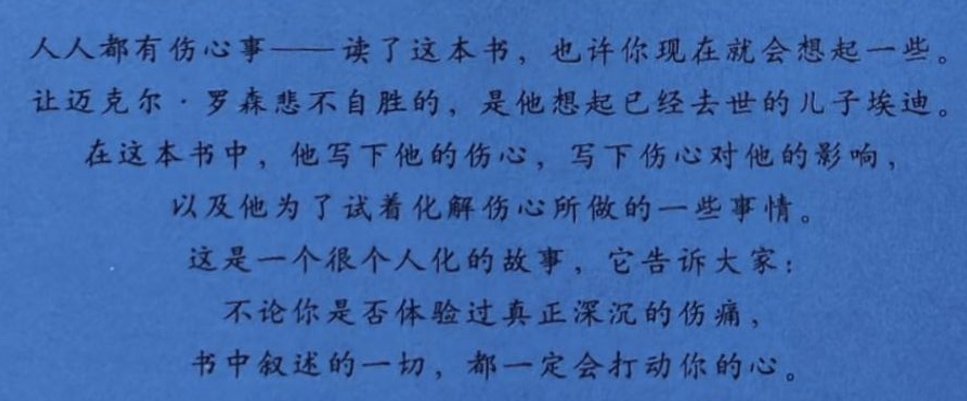 人人都有伤心事——读了这本书，也许你现在就会想起一些。
让迈克尔·罗森悲不自胜的，是他想起已经去世的儿子埃迪。
在这本书中，他写下他的伤心，写下伤心对他的影响，
以及他为了试着化解伤心所做的一些事情。
这是一个很个人化的故事，它告诉大家：
不论你是否体验过真正深沉的伤痛，
书中叙述的一切，都一定会打动你的心。